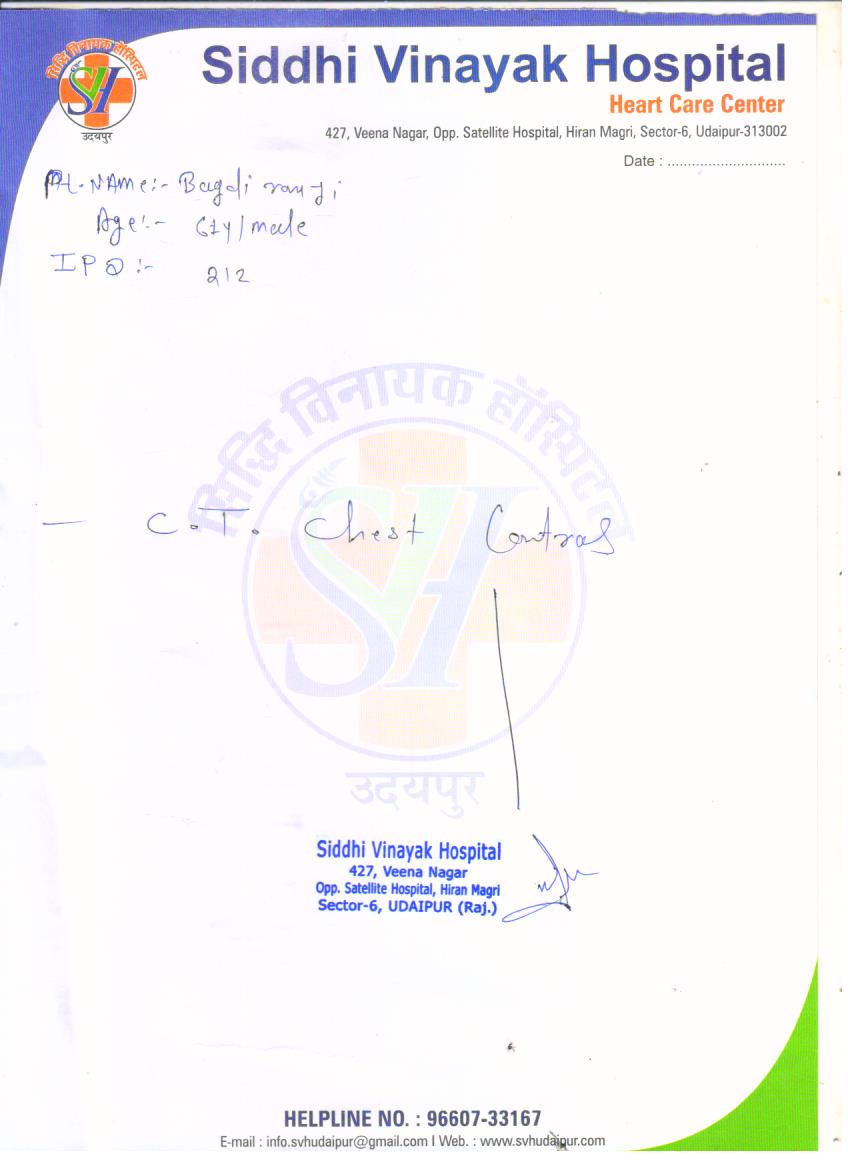 सिद्धि विनायक हॉस्पिटल
SVH
उदयपुर
Siddhi Vinayak Hospital
Heart Care Center
427, Veena Nagar, Opp. Satellite Hospital, Hiran Magri, Sector-6, Udaipur-313002
Date : .............................
Pt. NAme:- Bagdi ram ji
Age:- 61y/male
IPD :- 212
सिद्धि विनायक हॉस्पिटल
— C.T. Chest Contras
SVH
उदयपुर
Siddhi Vinayak Hospital
427, Veena Nagar
Opp. Satellite Hospital, Hiran Magri
Sector-6, UDAIPUR (Raj.)
HELPLINE NO. : 96607-33167
E-mail : info.svhudaipur@gmail.com I Web. : www.svhudaipur.com